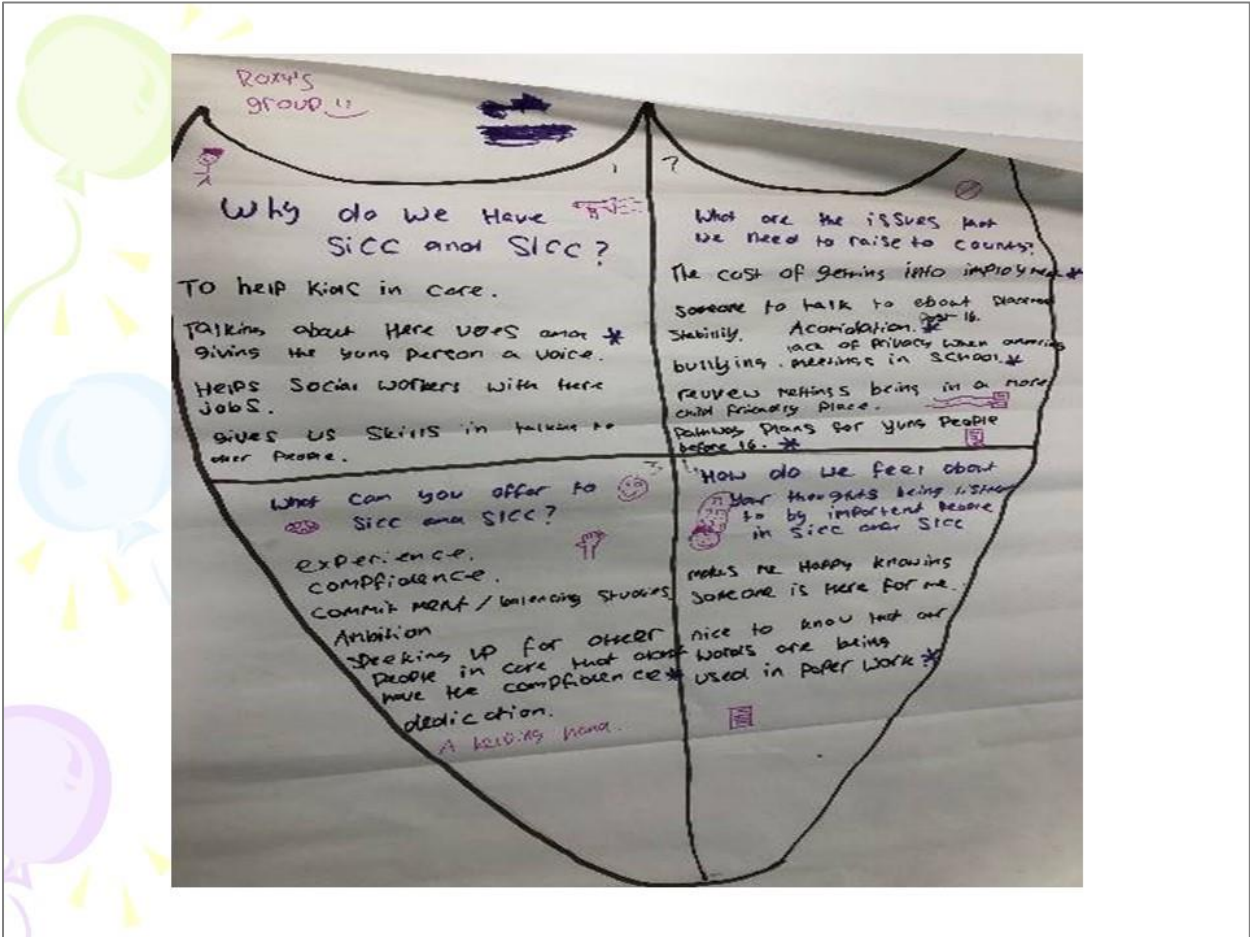 Roxy's
group
1
Why do we Have
SiCC and SICC?
To help Kids in care.
Talking about Here
giving the yung person a voice.
Helps Social workers with there
jobs.
gives us skills in talking to
other People.
?
What are the issues that
we need to raise to
The cost of getting into
someone to talk to ebout
Stability. Acomidation. Post 16.
lack of Privacy when
bullying. meetings in SCHOOL.
being in a more
child Friendly Place.
Pathway Plans for yung People
before 16.
3
What can you offer to
SiCC and SICC?
experience.
compfidence.
commitment / balencing Studies
Ambition
Speeking up for other
People in care that dont
have the compfidence
dedication.
A helping hand.
How do we feel about
Your thoughts being
to by importent People
in SiCC and SICC
makes me Happy knowing
someone is Here for me.
nice to know that our
words are being
used in Paper work